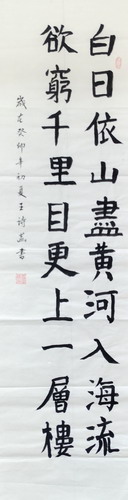 白日依山盡黃河入海流
欲窮千里目更上一層樓
歲在癸卯年初夏王詩書